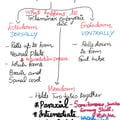 What happens to
Trilaminar Embryonic
disc
Ectoderm
DORSALLY
Endoderm
VENTRALLY
- Rolls up to form
Neural Plate
- which forms
Brain and
Spinal cord
- Rolls down
to form
Gut tube
Mesoderm
- Holds Two tubes together
* Paraxial
* Intermediate